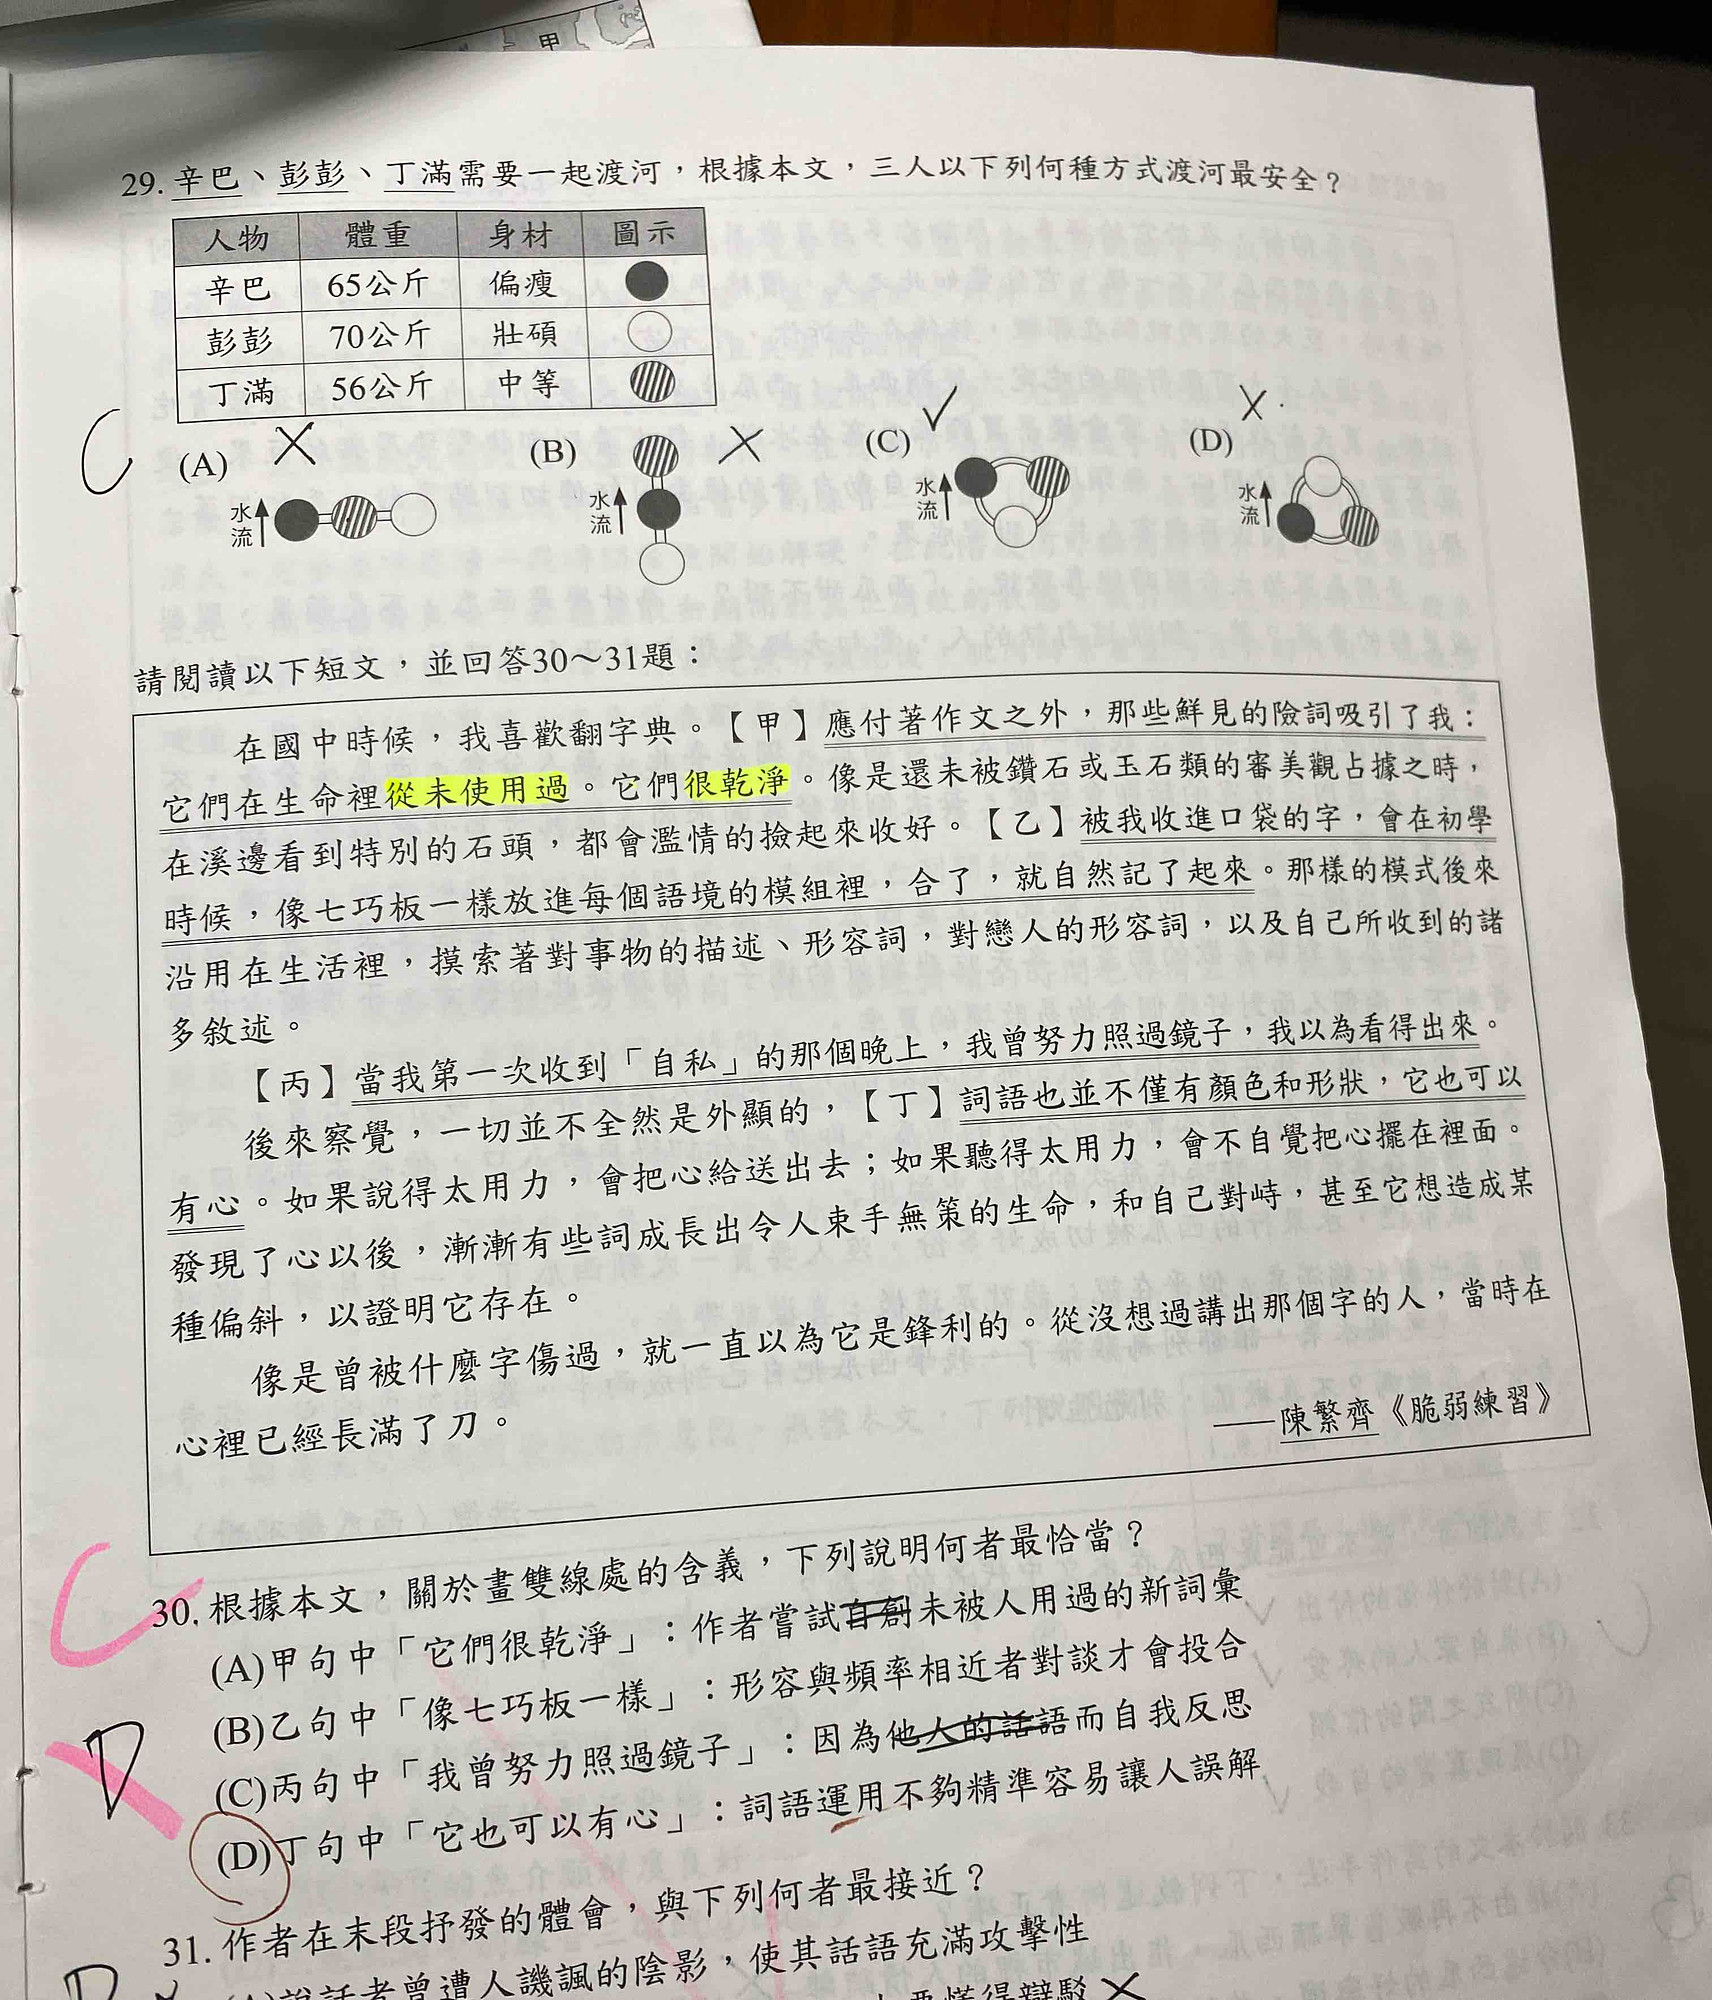 甲
29. 辛巴、彭彭、丁滿需要一起渡河，根據本文，三人以下列何種方式渡河最安全？
人物 體重 身材 圖示
辛巴 65公斤 偏瘦
彭彭 70公斤 壯碩
丁滿 56公斤 中等
C (A) (B) (C) (D)
水流 水流 水流 水流
請閱讀以下短文，並回答30～31題：
在國中時候，我喜歡翻字典。【甲】應付著作文之外，那些鮮見的險詞吸引了我：
它們在生命裡從未使用過。它們很乾淨。像是還未被鑽石或玉石類的審美觀占據之時，
在溪邊看到特別的石頭，都會濫情的撿起來收好。【乙】被我收進口袋的字，會在初學
時候，像七巧板一樣放進每個語境的模組裡，合了，就自然記了起來。那樣的模式後來
沿用在生活裡，摸索著對事物的描述、形容詞，對戀人的形容詞，以及自己所收到的諸
多敘述。
【丙】當我第一次收到「自私」的那個晚上，我曾努力照過鏡子，我以為看得出來。
後來察覺，一切並不全然是外顯的，【丁】詞語也並不僅有顏色和形狀，它也可以
有心。如果說得太用力，會把心給送出去；如果聽得太用力，會不自覺把心擺在裡面。
發現了心以後，漸漸有些詞成長出令人束手無策的生命，和自己對峙，甚至它想造成某
種偏斜，以證明它存在。
像是曾被什麼字傷過，就一直以為它是鋒利的。從沒想過講出那個字的人，當時在
心裡已經長滿了刀。
——陳繁齊《脆弱練習》
C
30. 根據本文，關於畫雙線處的含義，下列說明何者最恰當？
(A)甲句中「它們很乾淨」：作者嘗試自創未被人用過的新詞彙
(B)乙句中「像七巧板一樣」：形容與頻率相近者對談才會投合
(C)丙句中「我曾努力照過鏡子」：因為他人的話語而自我反思
D
(D)丁句中「它也可以有心」：詞語運用不夠精準容易讓人誤解
31. 作者在末段抒發的體會，與下列何者最接近？
(A)說話者曾遭人譏諷的陰影，使其話語充滿攻擊性
要懂得辯駁